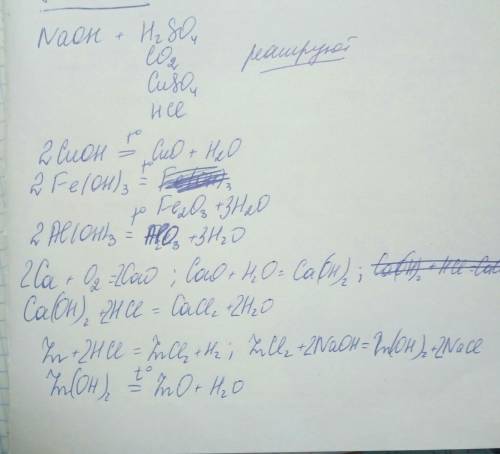 NaOH + H₂SO₄
CO₂
CuSO₄
HCl
реагируют
2CuOH =t° CuO + H₂O
2Fe(OH)₃ =t°
Fe₂O₃ + 3H₂O
2Al(OH)₃ =t° Al₂O₃ + 3H₂O
2Ca + O₂ = 2CaO ; CaO + H₂O = Ca(OH)₂ ;
Ca(OH)₂ + 2HCl = CaCl₂ + 2H₂O
Zn + 2HCl = ZnCl₂ + H₂ ; ZnCl₂ + 2NaOH = Zn(OH)₂ + 2NaCl
Zn(OH)₂ =t° ZnO + H₂O